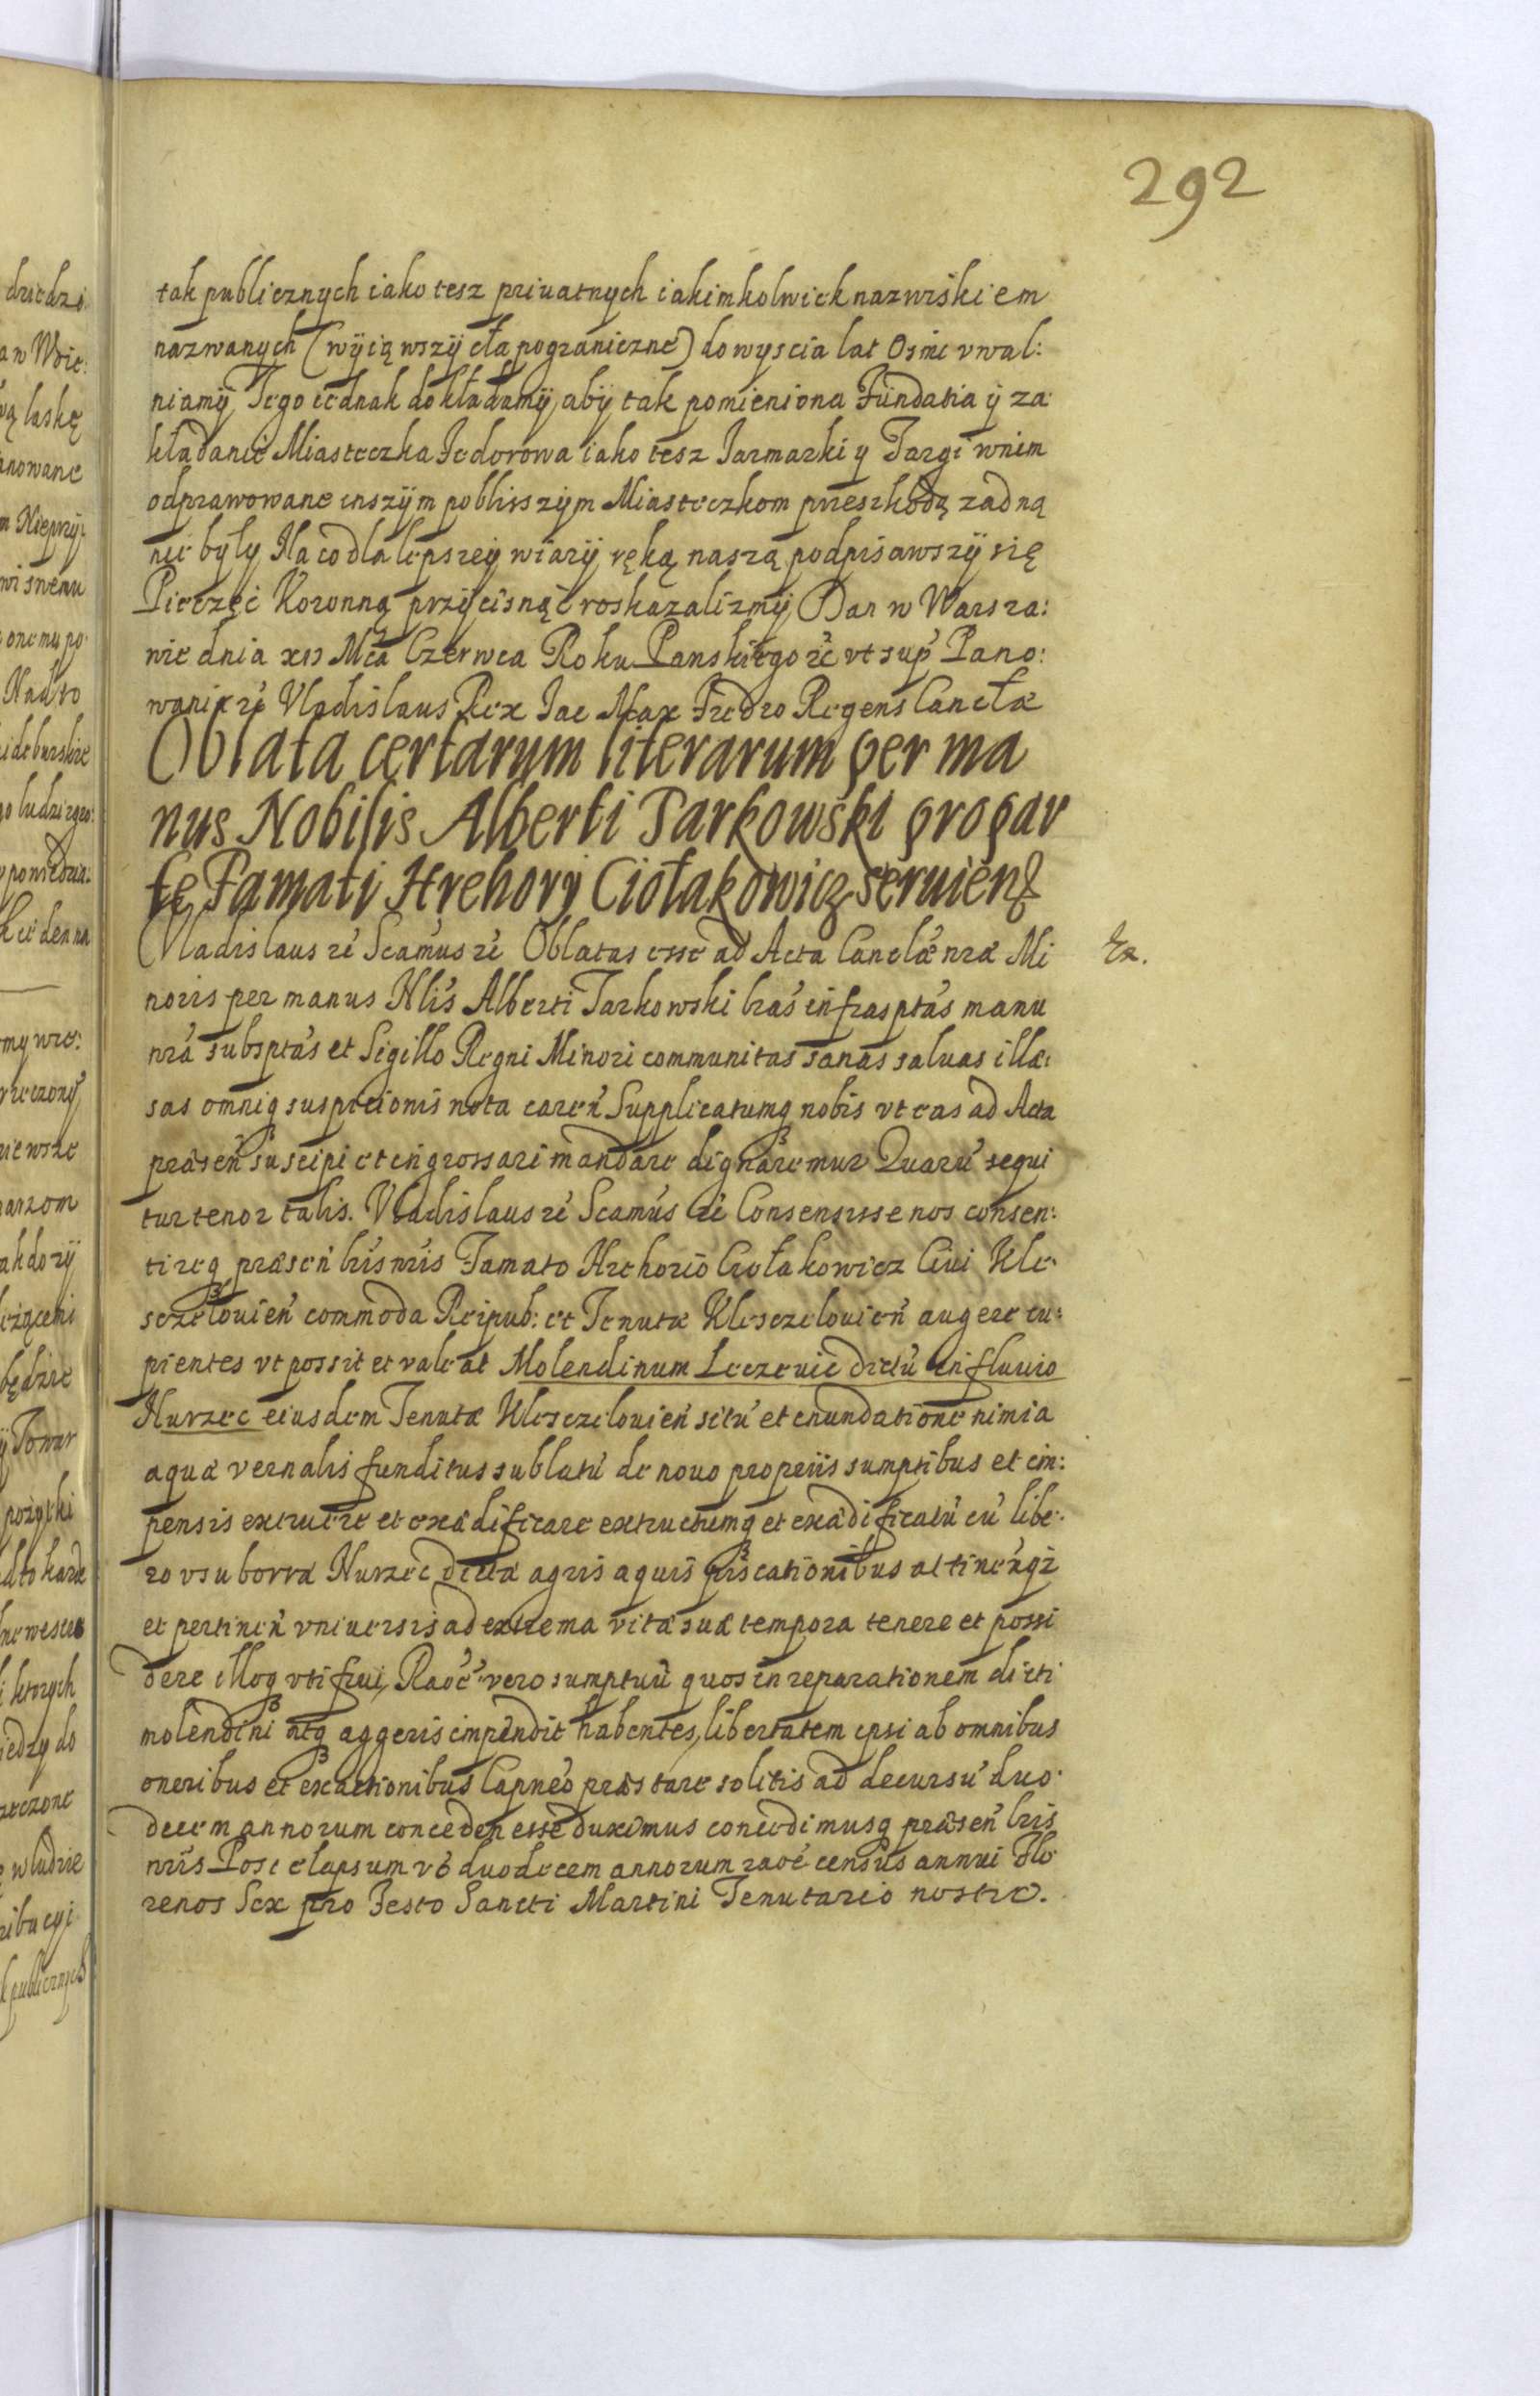 292
tak publicznych iako tesz priuatnych iakimkolwiek nazwiskiem
nazwanych (wyiąwszy cła pograniczne) do wyscia lat Osmi vwal:
niamy, Tego iednak dokładamy, aby tak pomieniona Fundatia y za
kładanie Miasteczka Fedorowa iako tesz Iarmarki y Targi wnim
odprawowane inszym pobliszym Miasteczkom przeszkodą zadną
nie były Na co dla lepszey wiary ręką naszą podpisawszy się
Pieczęć Koronną przycisnąć roskazalismy Dan w Warsza:
wie dnia xii Mca Czerwca Roku Panskiego rć vt sup Pano:
wania rć Vladislaus Rex Iac Max Fredro Regens Cancłæ
Oblata certarum literarum per ma
nus Nobilis Alberti Tarkowski pro par
te Famati Hrehory Ciołakowicz seruien
Vladislaus rć Scamus rć Oblatas esse ad Acta Canclæ nræ Mi
Ex.
noris per manus Nlis Alberti Tarkowski lras infrasptas manu
nra subsptas et Sigillo Regni Minori communitas sanas saluas illæ:
sas omniq suspicionis nota caren Supplicatumq nobis vt eas ad Acta
præsen suscipi et ingrossari mandare dignaremur Quaru sequi
tur tenor talis. Vladislaus rć Scamus rć Consensisse nos consen:
tireq præsen lris nris Famato Hrehorio Ciołakowicz Ciui Kle
szczelouien commoda Reipub: et Tenutæ Klesczelouien augere cu:
pientes vt possit et valeat Molendinum Leczeuie dictu in fluuio
Nurzec eiusdem Tenutæ Klesczelouien situ et inundatione nimia
aquæ vernalis funditus sublatu de nouo propriis sumptibus et im:
pensis extruere et exædificare extructumq et exædificatu cu libe
ro vsu borræ Nurzec dictæ agris aquis piscationibus attinenq
et pertinen vniuersis ad extrema vitæ suæ tempora tenere et possi
dere illoq vti frui, Raoe vero sumptuu quos in reparationem dicti
molendini atq aggeris impendit habentes, libertatem ipsi ab omnibus
oneribus et exactionibus Capneo præstare solitis ad decursu duo
decem annorum conceden esse duximus concedimusq præsen lris
nris Post elapsum vo duodecem annorum raoe census annui Flo
renos Sex pro Festo Sancti Martini Tenutario nostro.